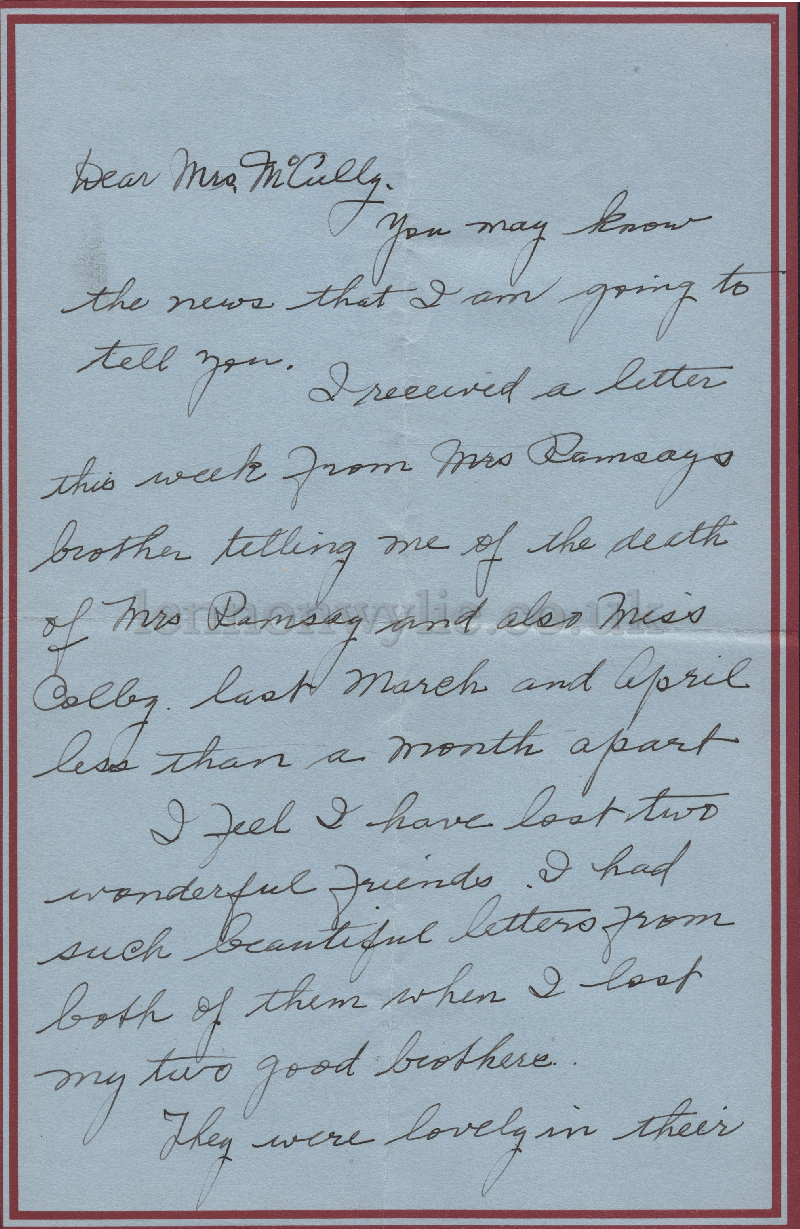 Dear Mrs, McCully.
You may know
the news that I am going to
tell you.
I received a letter
this week from Mrs Ramsays
brother telling me of the death
of Mrs Ramsay and also Miss
lennonwylie.co.uk
Colby. last March and April
less than a month apart
I feel I have lost two
wonderful friends. I had
such beautiful letters from
both of them when I lost
my two good brothers.
They were lovely in their